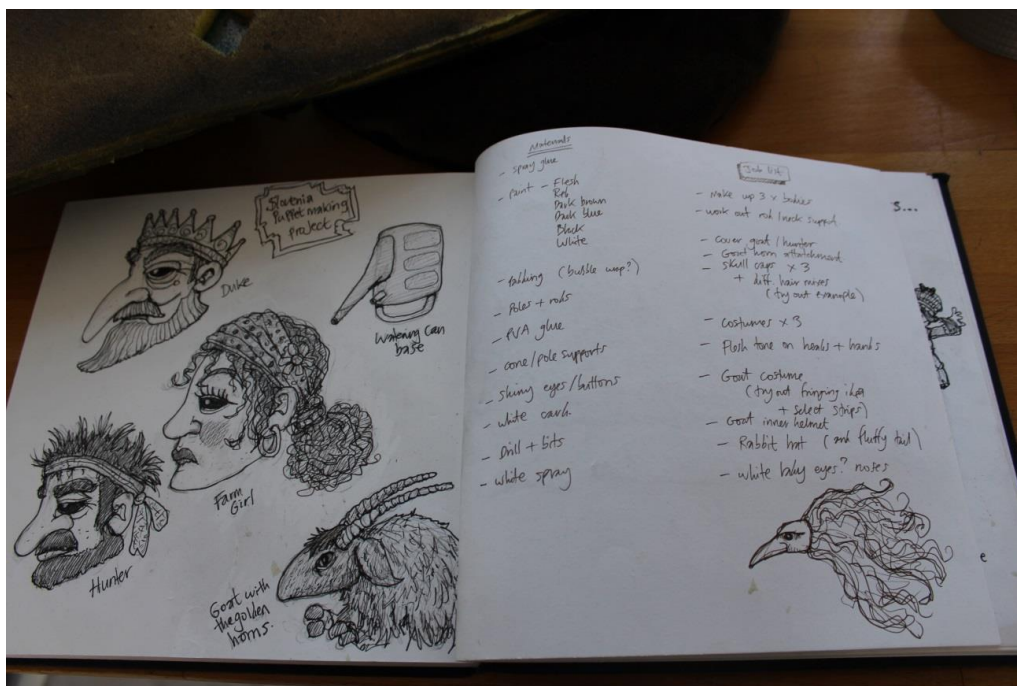 Slovenia
Puppet making
project
Duke
Watering Can
base
Farm
Girl
Hunter
Goat with
the golden
horns.
Materials
- spray glue
- paint - Flesh
Red
Dark brown
Dark blue
Black
White
- Padding (bubble wrap?)
- Poles + rods
- PVA glue
- cone/pole supports
- shiny eyes/buttons
- white card
- Drill + bits
- white spray
Job list
- Make up 3 x bodies
- work out rod/neck support
- Cover goat/hunter
- Goat horn attatchment
- skull caps x 3
+ diff. hair mixes
(try out example)
- Costumes x 3
- Flesh tone on heads + hands
- Goat costume
(try out fringing idea
+ select strips)
- Goat inner helmet
- Rabbit hat (and fluffy tail)
- white baby eyes? noses
s...
e